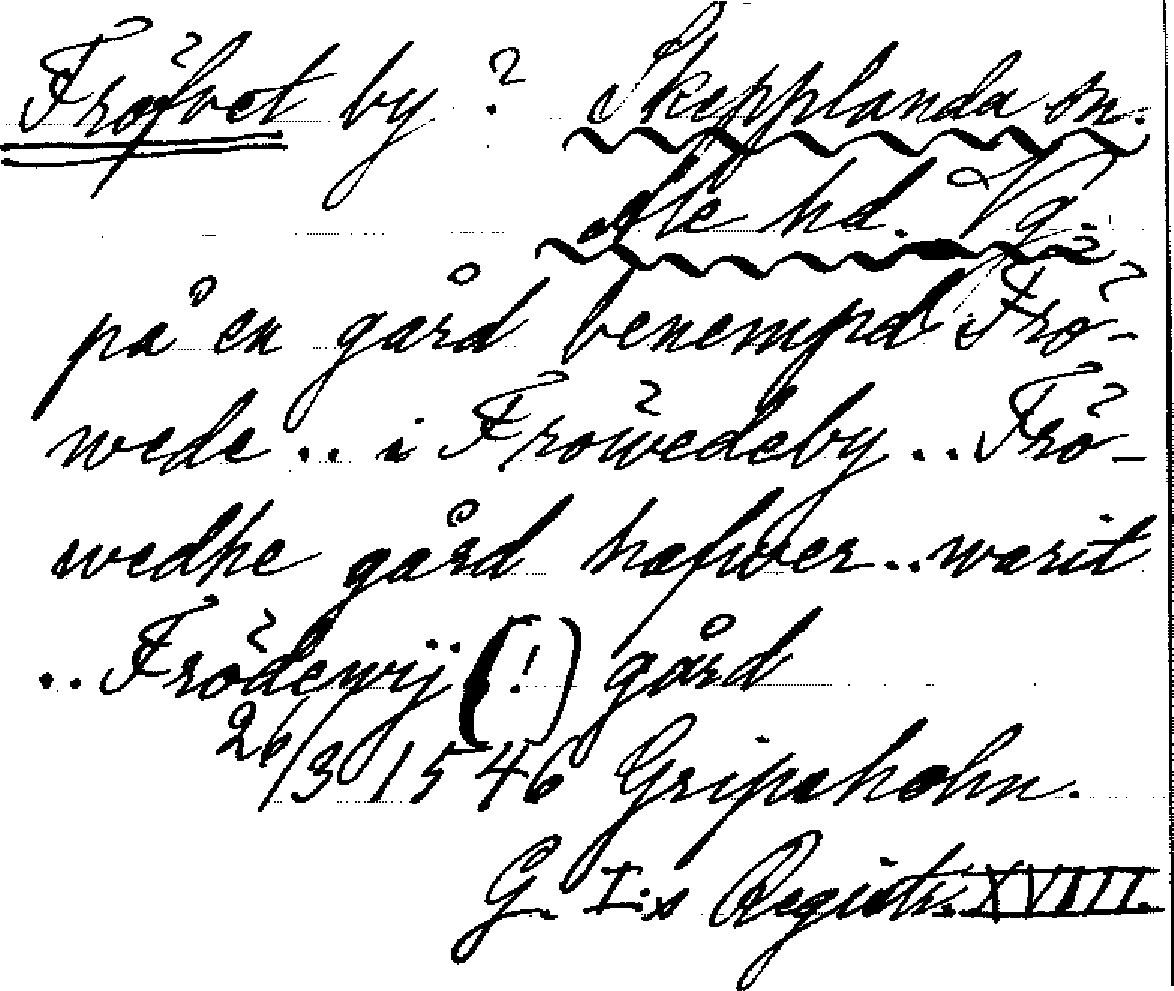 Fröfvet by? Skepplanda sn.
Ale hd. Vg.
på en gård benempd Frö-
wede .. i Fröwedeby .. Frö-
wedhe gård hafwer .. warit
.. Frödewij (!) gård
26/3 1546 Gripsholm.
G. I:s Registr. XVIII.